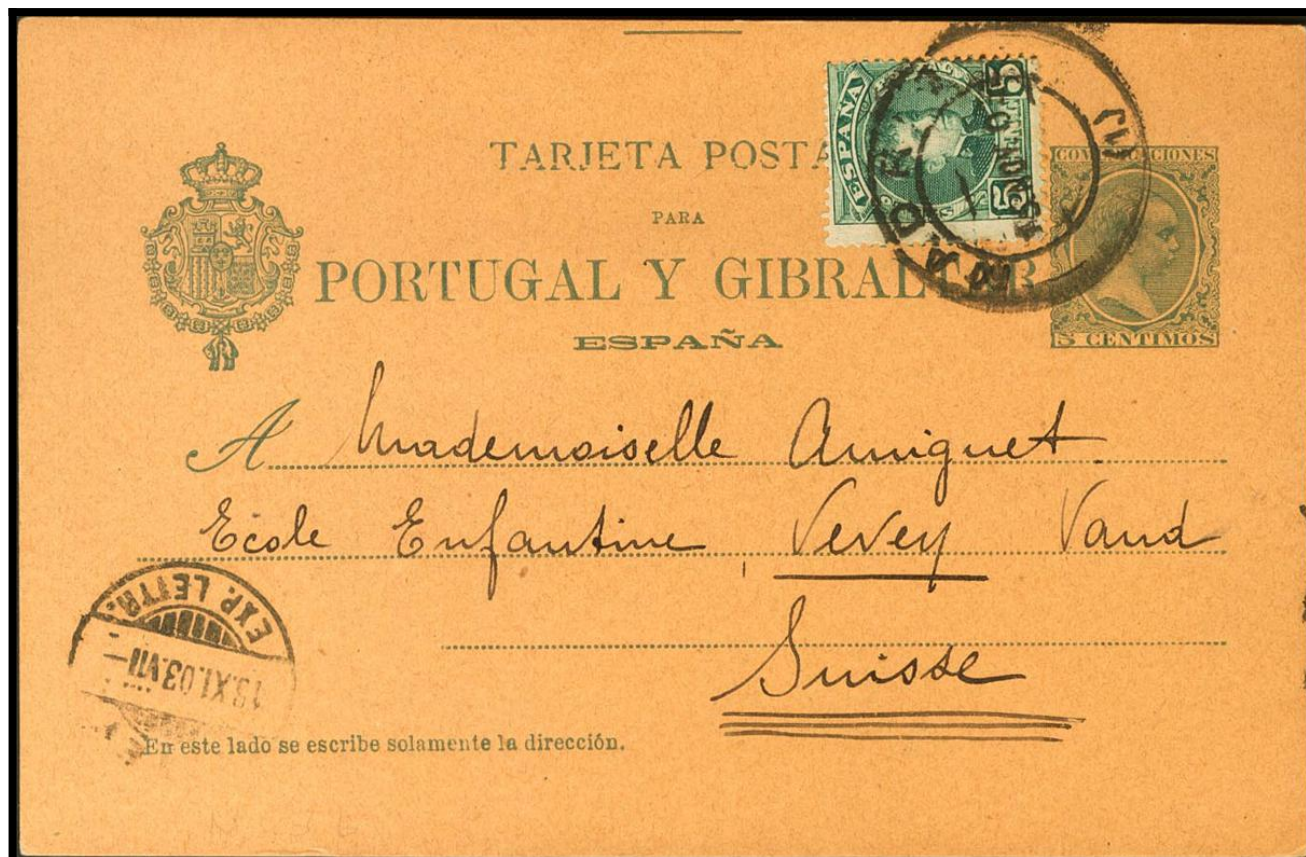 TARJETA POSTA
PARA
PORTUGAL Y GIBRALTAR
ESPAÑA
ESPAÑA
5
5
COMUNICACIONES
5 CENTIMOS
A Mademoiselle Amiguet.
Ecole Enfantine Vevey Vaud
Suisse
EXP. LETTR.
13.XI.03.VII
En este lado se escribe solamente la dirección.